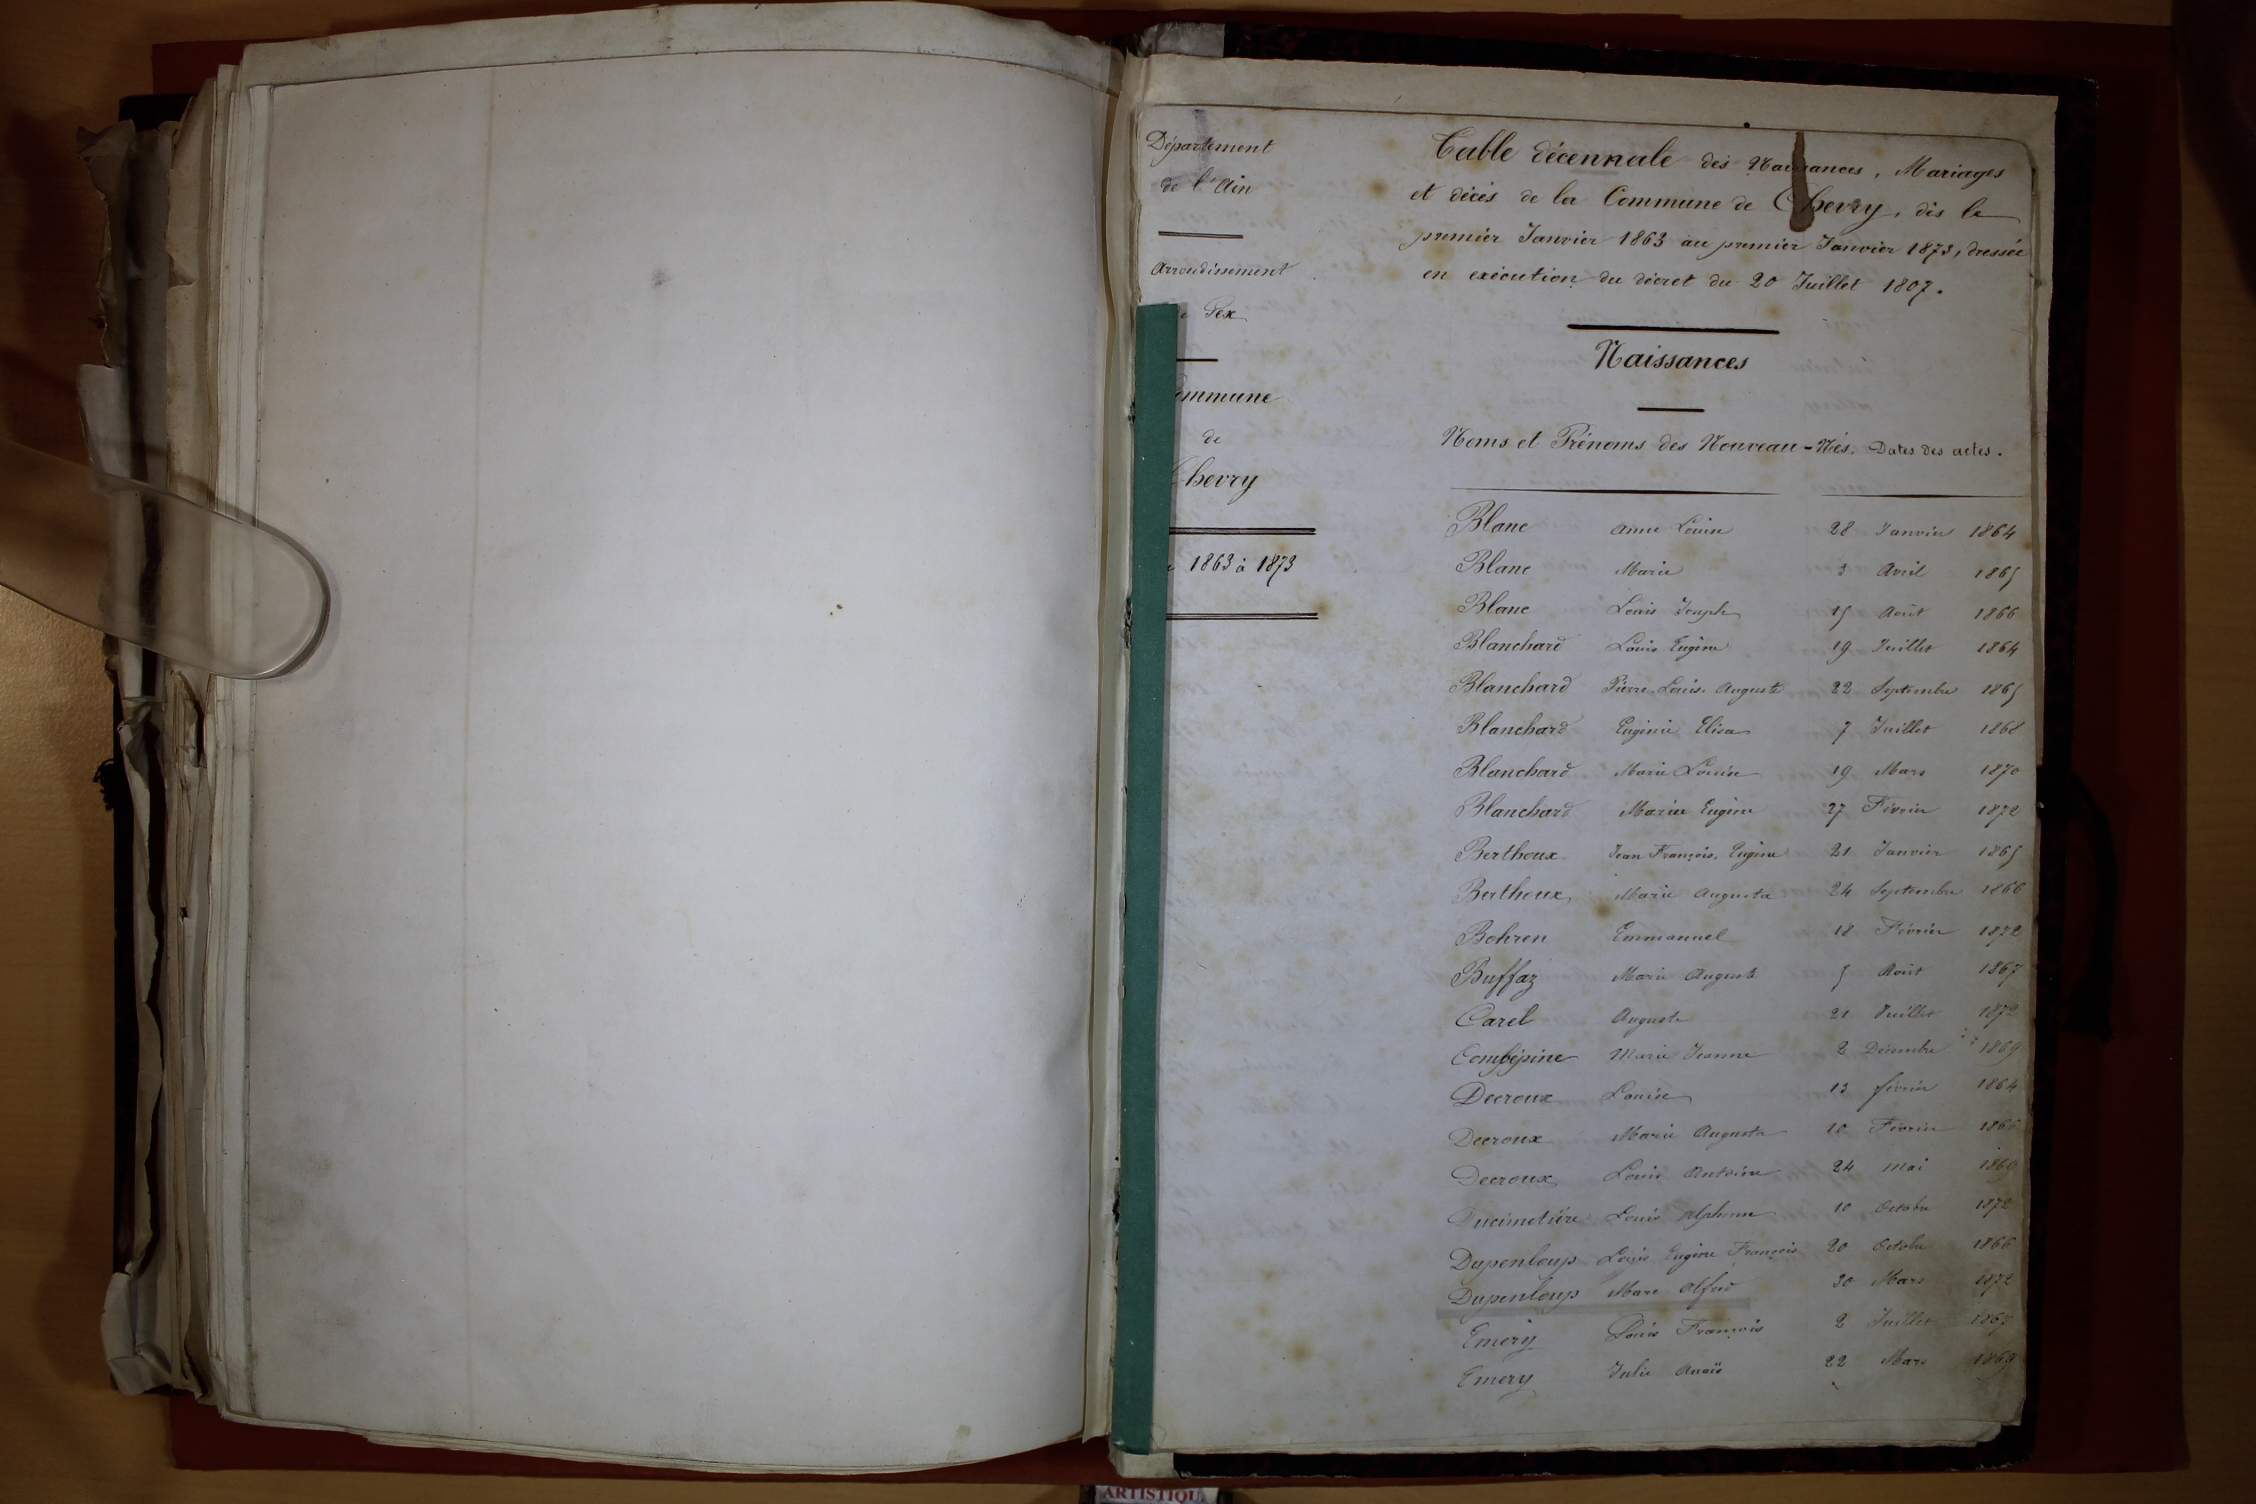 Département
de l'Ain
Arrondissement
Gex
Commune
de
Chevry
1863 à 1873
Table décennale des Naissances, Mariages
et décès de la Commune de Chevry, dès le
premier Janvier 1863 au premier Janvier 1873, dressée
en exécution du décret du 20 Juillet 1807.
Naissances
Noms et Prénoms des Nouveau-Nés. Dates des actes.
Blanc Anne Louise 28 Janvier 1864
Blanc Marie 3 Avril 1865
Blanc Louis Joseph 15 Août 1866
Blanchard Louis Eugène 19 Juillet 1864
Blanchard Pierre Louis Auguste 22 Septembre 1865
Blanchard Eugénie Elisa 7 Juillet 1868
Blanchard Marie Louise 19 Mars 1870
Blanchard Marie Eugène 27 Février 1872
Berthoux Jean François Eugène 21 Janvier 1865
Berthoux Marie Augusta 24 Septembre 1866
Bohren Emmanuel 18 Février 1872
Buffaz Marie Auguste 5 Août 1867
Carel Auguste 21 Juillet 1872
Combépine Marie Jeanne 2 Décembre 1869
Decroux Louise 13 février 1864
Decroux Marie Augusta 10 Février 1866
Decroux Louis Antoine 24 mai 1869
Ducimetière Louis Alphonse 10 Octobre 1872
Dupenloup Louis Eugène François 20 Octobre 1866
Dupenloup Marc Alfred 30 Mars 1872
Emery Louis François 2 Juillet 1867
Emery Julie Anaïs 22 Mars 1869
ARTISTIQU